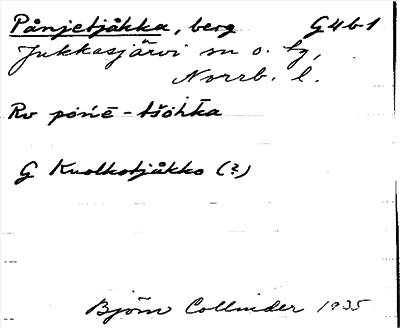 Pånjetjåkka, berg G4b1
Jukkasjärvi sn o. tg,
Norrb. l.
Rv pońē-tšŏhka
G Kuolkotjåkko (?)
Björn Collinder 1935